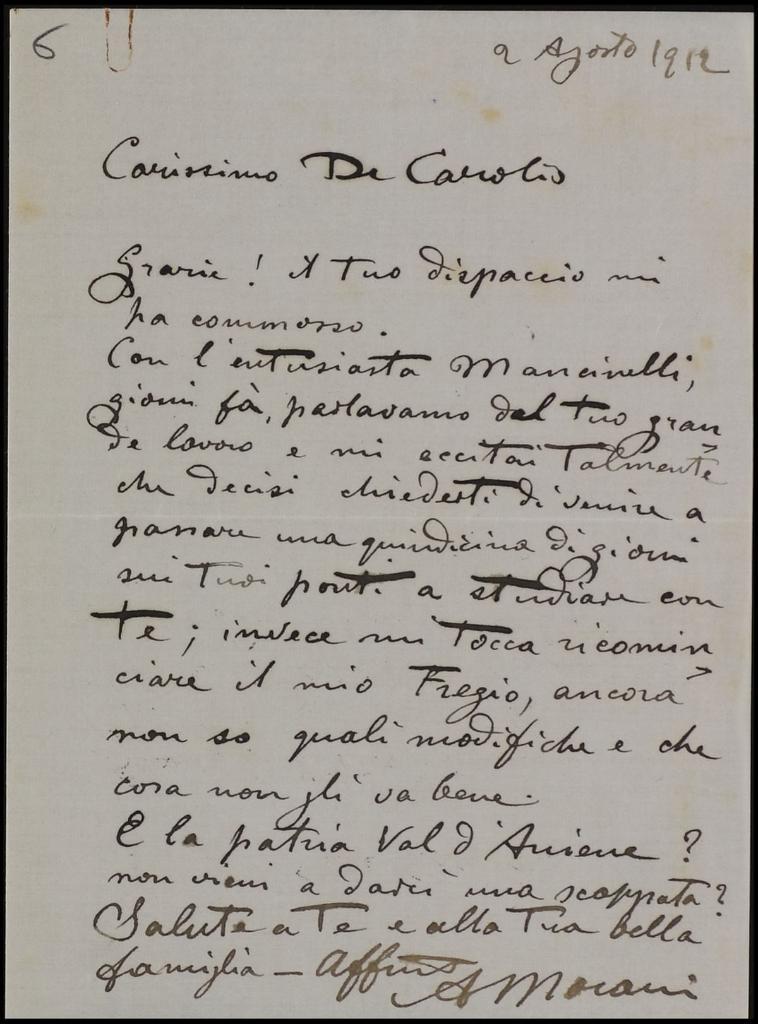 6
2 Agosto 1912
Carissimo De Carolis
Grazie! Il tuo dispaccio mi
ha commosso.
Con l'entusiasta Mancinelli,
giorni fà, parlavamo del tuo gran
de lavoro e mi eccitai talmente
che decisi chiederti di venire a
passare una quindicina di giorni
sui tuoi ponti a studiare con
te; invece mi tocca ricomin
ciare il mio Fregio, ancora
non so quali modifiche e che
cosa non gli va bene.
E la patria Val d'Aniene?
non vieni a darci una scappata?
Salute a Te e alla Tua bella
famiglia - Affmo
A Morani